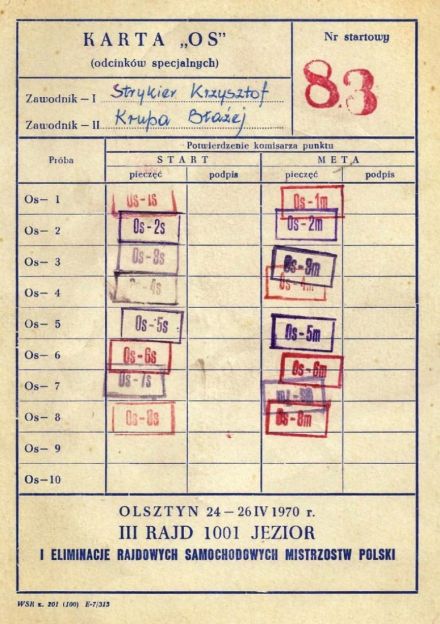 KARTA „OS"
(odcinków specjalnych)
Nr startowy
83
Zawodnik – I Strykier Krzysztof
Zawodnik – II Krupa Błażej
Próba
Potwierdzenie komisarza punktu
START META
pieczęć podpis pieczęć podpis
Os – 1 Os-1s Os-1m
Os – 2 Os-2s Os-2m
Os – 3 Os-3s Os-3m
Os – 4 Os-4s Os-4m
Os – 5 Os-5s Os-5m
Os – 6 Os-6s Os-6m
Os – 7 Os-7s
Os – 8 Os-8s Os-8m
Os – 9
Os – 10
OLSZTYN 24 – 26 IV 1970 r.
III RAJD 1001 JEZIOR
I ELIMINACJE RAJDOWYCH SAMOCHODOWYCH MISTRZOSTW POLSKI
WSR z. 201 (100) E-7/313